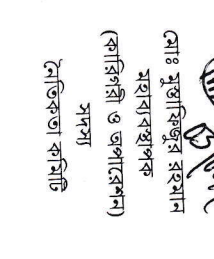 মোঃ মুস্তাফিজুর রহমান
মহাব্যবস্থাপক
(কারিগরী ও অপারেশন)
সদস্য
নৈতিকতা কমিটি